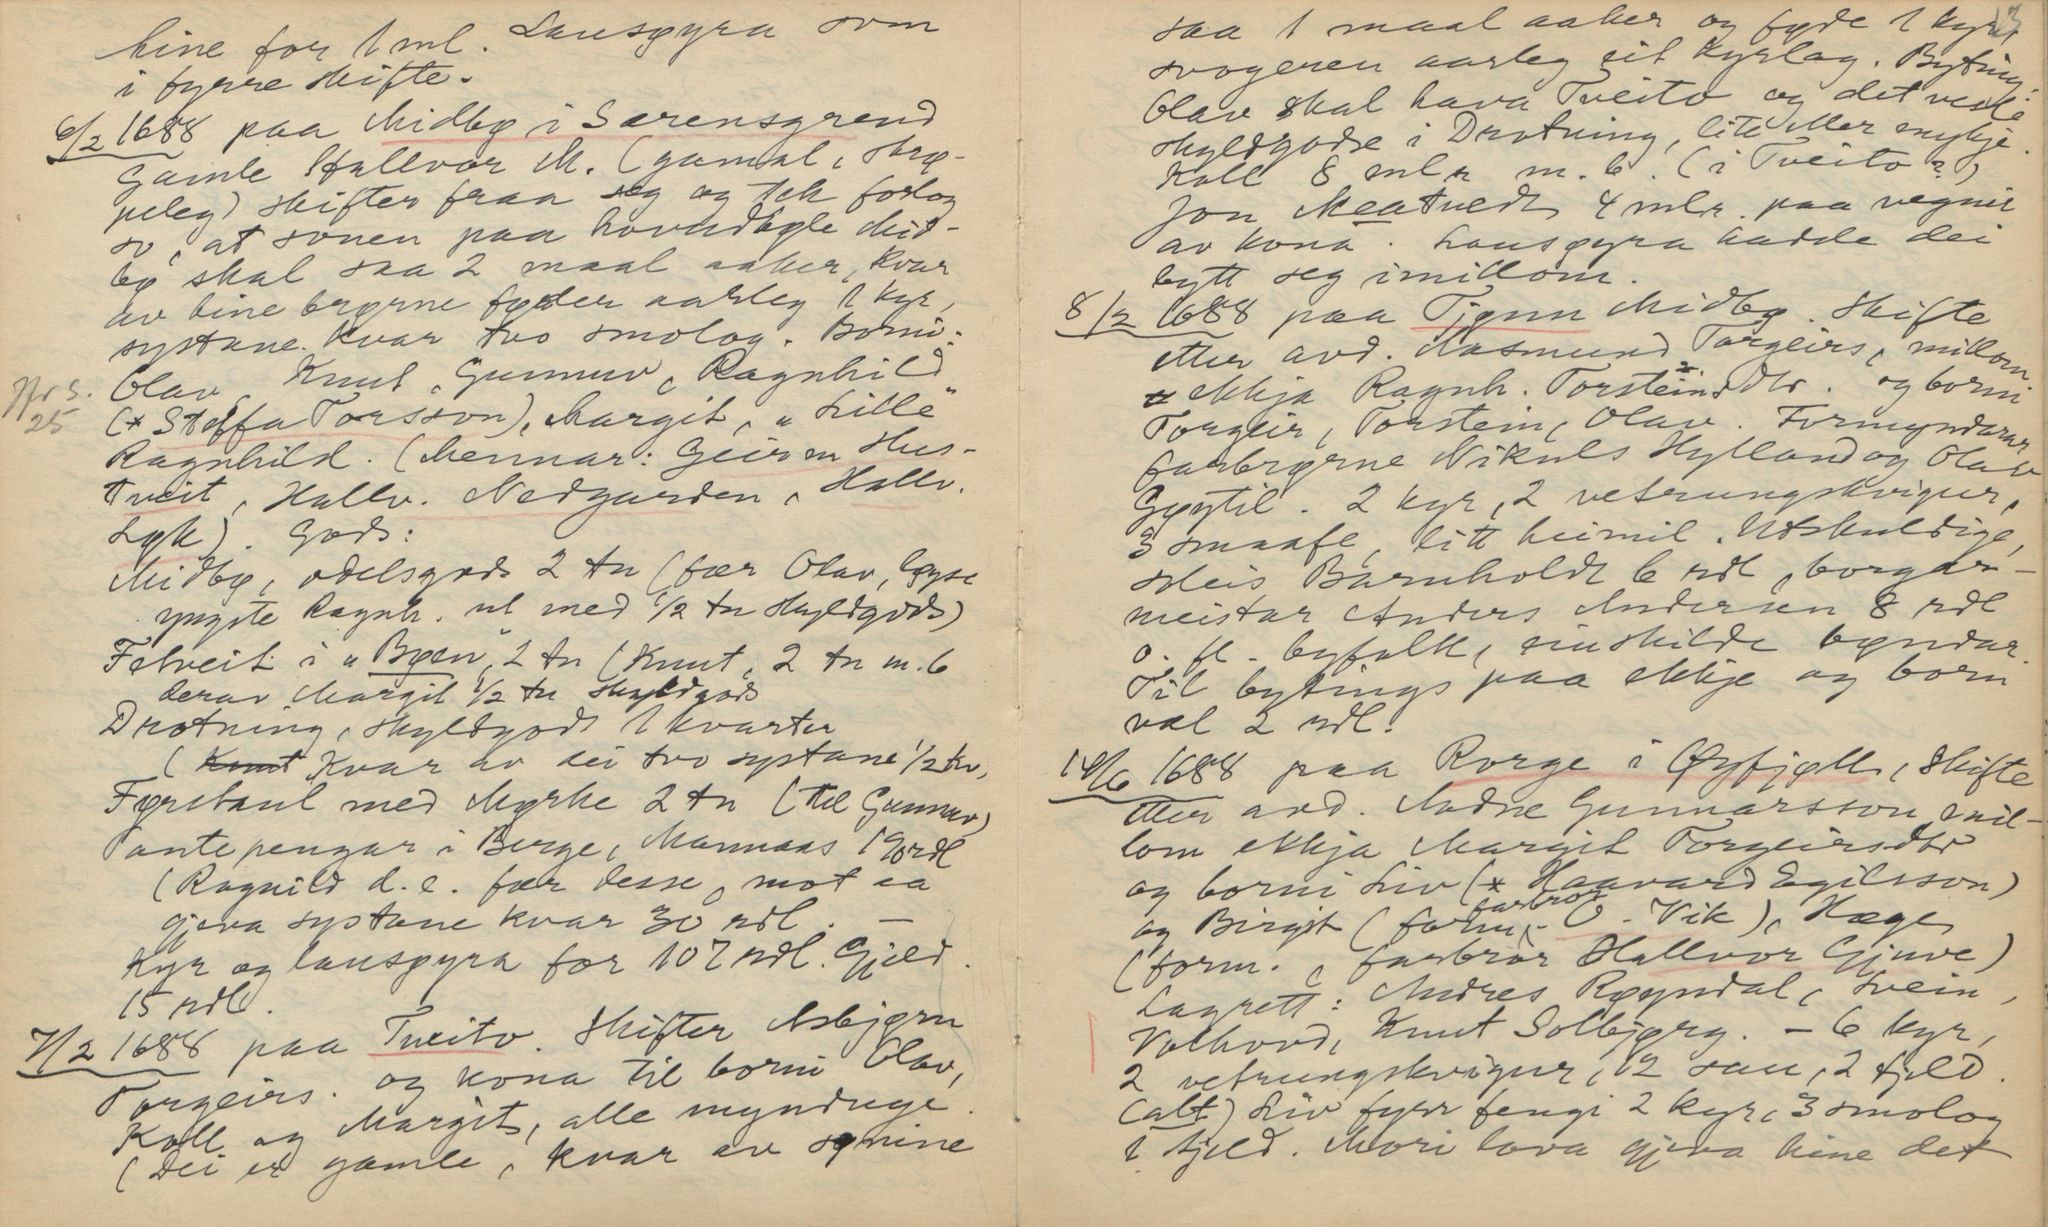 hine for 1 ml. Lausøyra som
i fyrre skifte.
6/2 1688 paa Midbø i Særensgrend
Gamle Hallvor M. (gamal, skrø-
peleg) skifter fraa seg og tek forlog
so, at sonen paa hovudbøle Mid-
bø skal saa 2 maal aaker, kvar
av hine brørne føder aarleg 1 kyr,
systane kvar tvo smolog. Borni:
Jfr s. 25
Olav, Knut, Gunnuv, Ragnhild
(* Steffa Torsson), Margit, "Litle"
Ragnhild. (Mennar: Geirm Hus-
tveit, Hallv. Nedgarden, Hallv.
Løk). Gods:
Midbø, odelsgods 2 tn (fær Olav, løyse
yngste Ragnh. ut med 1/2 tn skyldgods)
Fetveit i "Bøen", 2 tn (Knut, 2 tn m. 6
derav Margit 1/2 tn skyldgods
Drotning, skyldgods 1 kvarter
(Knut Kvar av dei tvo systane 1/2 kv.
Førstaul med Myrke 2 tn (til Gunnuv)
Pantepengar i Berge, Mannaas 190 rdl
(Ragnild d. e. fær desse, mot aa
gjeva systane kvar 30 rdl. —
Kyr og lausøyra for 107 rdl. Gjeld
15 rdl.
7/2 1688 paa Tveito. Skifter Asbjørn
Torgeirs. og kona til borni Olav,
Koll og Margit, alle mynduge.
(Dei er gamle, kvar av sønine
13
saa 1 maal aaker og føde 1 kyr,
svogeren aarleg eit kyrlag. Byting:
Olav skal hava Tveito og det vesle
skyldgodse i Drotning, lite eller mykje.
Koll 8 mlr m. 6. (i Tveito?)
Jon Meatvedt 4 mlr. paa vegnir
av kona. Lausøyra hadde dei
bytt seg imillom.
8/2 1688 paa Tjønn Midbø. Skifte
etter avd. Aasmund Torgeirs, millom
ekkja Ragnh. Torsteinsdtr. og borni
Torgeir, Torstein, Olav. Formyndarar
farbrørne Nikuls Hylland og Olav
Gøytil. 2 kyr, 2 vetrungskvigur,
3 smaafe, litt heimil. Utskuldige,
Meis Barnholdt 6 rdl, borgar-
meistar Anders Andersen 8 rdl
o. fl. byfolk, einskilde bøndar.
Til bytings paa ekkje og born
vel 2 rdl.
14/6 1688 paa Rorge i Øyfjøll, skifte
etter avd. Aadne Gunnarsson, mil-
lom ekkja Margit Torgeirsdtr
og borni Liv (* Haavard Egilsson)
og Birgit (form. farbror O. Vik), Hæge
(form., farbror Hallvor Gjuve)
Lagrett: Andres Røyndal, Svein
Volhovd, Knut Solbjørg. — 6 kyr,
2 vetrungskvigur, 12 sau, 2 fjeld.
(alt) Liv fyrr fengi 2 kyr, 3 smolog
1 fjeld. Mori lova gjeva hine det